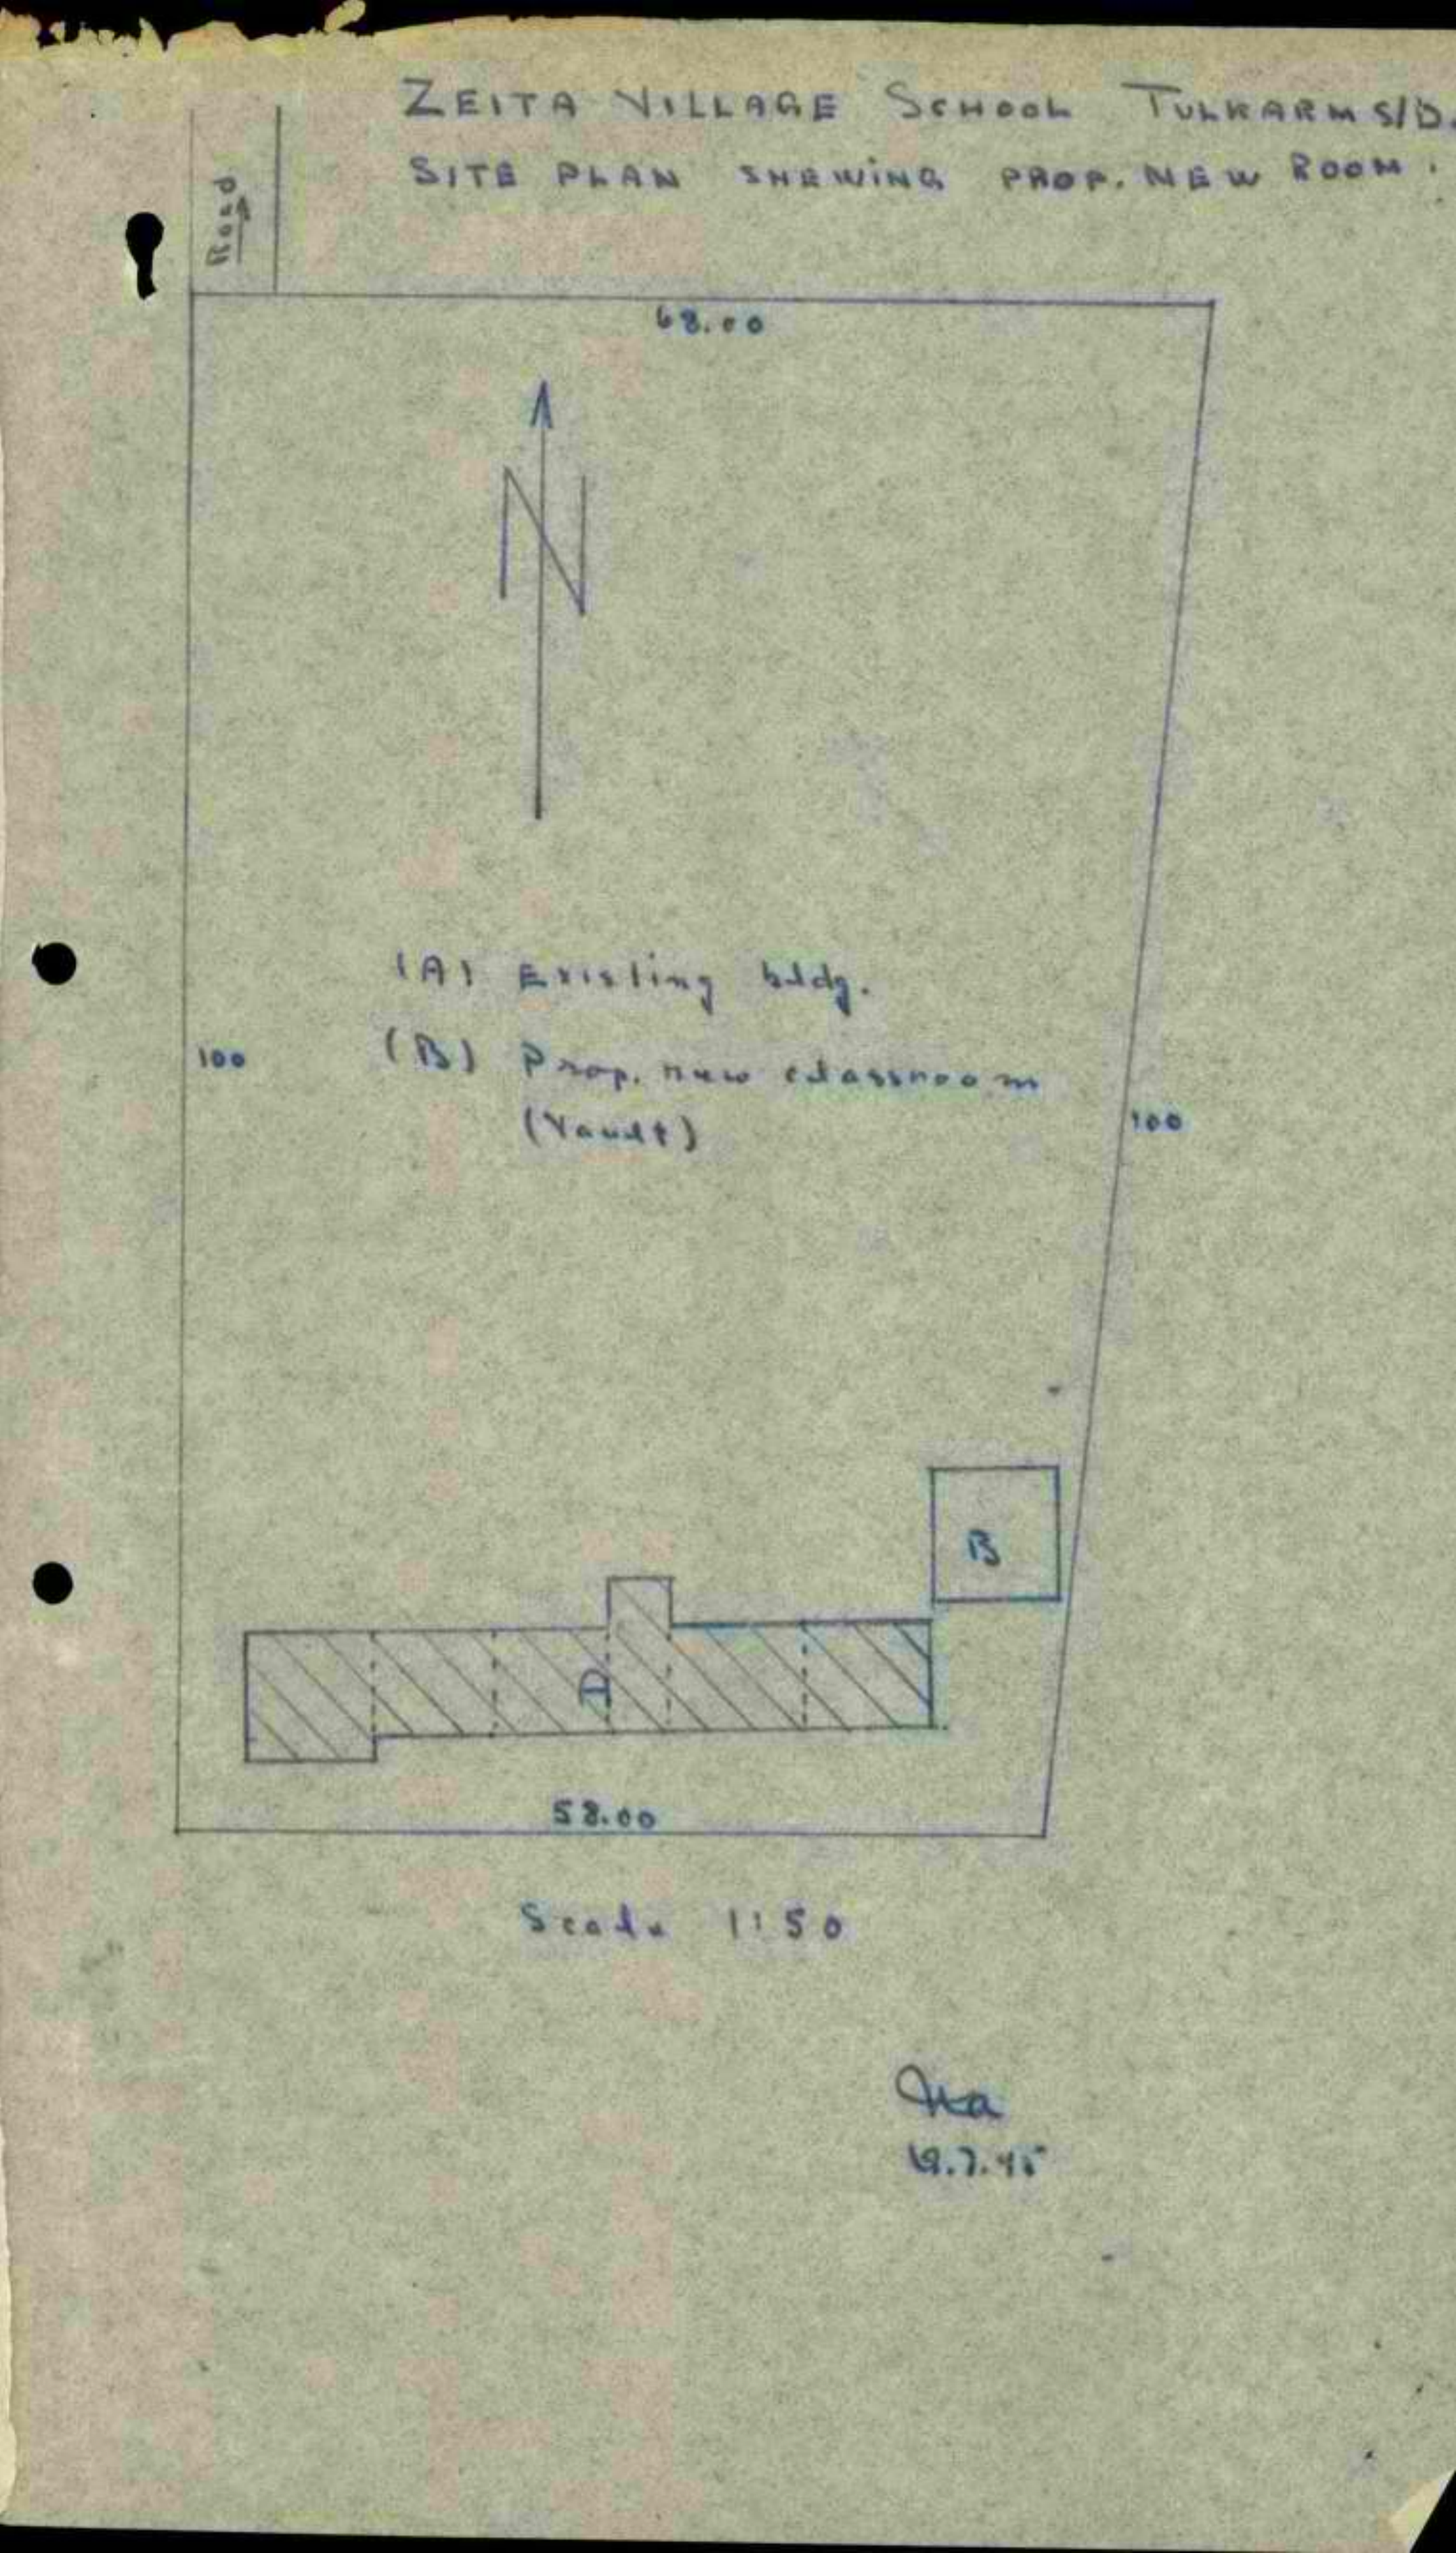 ZEITA VILLAGE SCHOOL TULKARM S/D.
SITE PLAN SHEWING PROP. NEW ROOM.
Road
68.00
N
(A) Existing bldg.
(B) Prop. new classroom
(Vault)
100
100
B
A
58.00
Scale 1:50